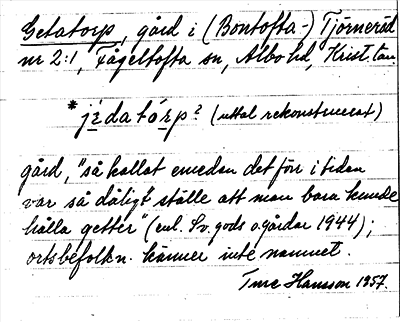 Getatorp, gård i (Bontofta-) Tjörneröd
nr 2:1, Fågeltofta sn, Albo hd, Krist. län.
*jèdatórp? (uttal rekonstruerat)
gård, "så kallat emedan det förr i tiden
var så dåligt ställe att man bara kunde
hålla getter" (enl. Sv. gods o. gårdar 1944);
ortsbefolkn. känner inte namnet.
Ture Hansson 1957.